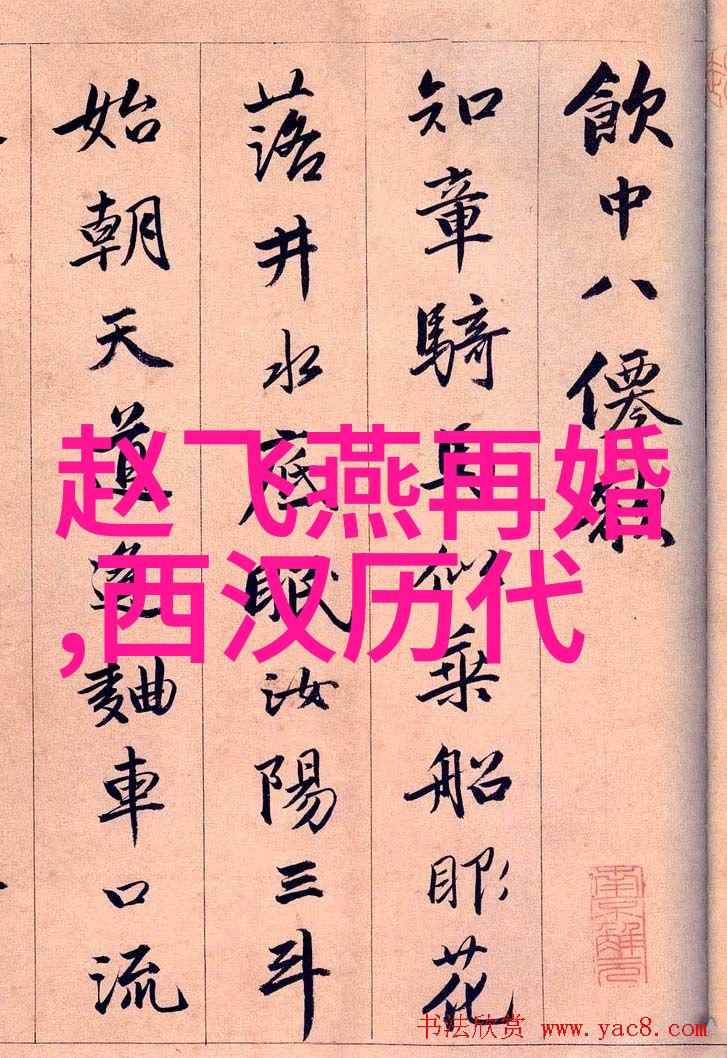 飲中八僊歌
知章騎馬似乗船眼花
落井水底眠汝陽三斗
始朝天道逢麯車口流
赵飞燕再婚
,西汉历代
南京解元
书法欣赏 www.yac8.com